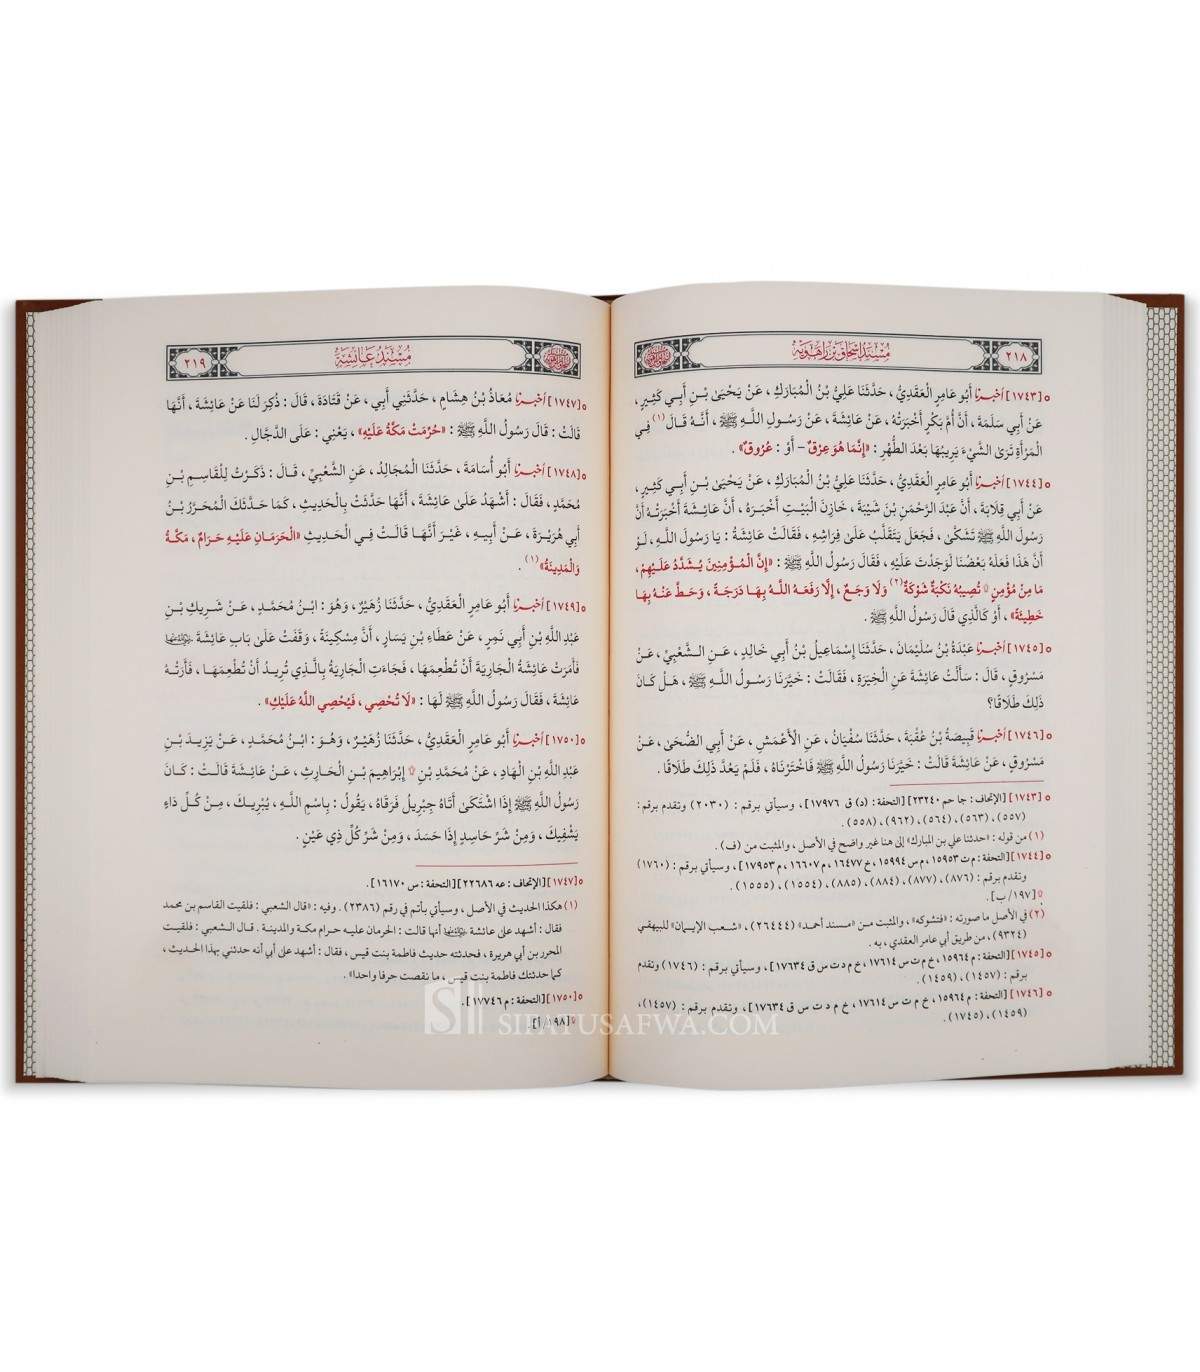 ٢١٨
مسند إسحاق بن راهويه
° [١٧٤٣] أخبرنا أَبُو عَامِرٍ الْعَقَدِيُّ ، حَدَّثَنَا عَلِيُّ بْنُ الْمُبَارَكِ ، عَنْ يَحْيَىٰ بْنِ أَبِي كَثِيرٍ ،
عَنْ أَبِي سَلَمَةَ ، أَنَّ أُمَّ بَكْرٍ أَخْبَرَتْهُ ، عَنْ عَائِشَةَ ، عَنْ رَسُولِ اللَّهِ ﷺ ، أَنَّهُ قَالَ (١) فِي
الْمَرْأَةِ تَرَىٰ الشَّيْءَ يَرِيبُهَا بَعْدَ الطُّهْرِ : «إِنَّمَا هُوَ عِرْقٌ – أَوْ : عُرُوقٌ» .
° [١٧٤٤] أخبرنا أَبُو عَامِرٍ الْعَقَدِيُّ ، حَدَّثَنَا عَلِيُّ بْنُ الْمُبَارَكِ ، عَنْ يَحْيَىٰ بْنِ أَبِي كَثِيرٍ ،
عَنْ أَبِي قِلَابَةَ ، أَنَّ عَبْدَ الرَّحْمَنِ بْنَ شَيْبَةَ ، خَازِنَ الْبَيْتِ أَخْبَرَهُ ، أَنَّ عَائِشَةَ أَخْبَرَتْهُ أَنَّ
رَسُولَ اللَّهِ ﷺ تَشَكَّىٰ ، فَجَعَلَ يَتَقَلَّبُ عَلَىٰ فِرَاشِهِ ، فَقَالَتْ عَائِشَةُ : يَا رَسُولَ اللَّهِ ، لَوْ
أَنَّ هَذَا فَعَلَهُ بَعْضُنَا لَوَجَدْتَ عَلَيْهِ ، فَقَالَ رَسُولُ اللَّهِ ﷺ : «إِنَّ الْمُؤْمِنِينَ يُشَدَّدُ عَلَيْهِمْ ،
مَا مِنْ مُؤْمِنٍ ۩ تُصِيبُهُ نَكْبَةٌ شَوْكَةٌ (٢) وَلَا وَجَعٌ ، إِلَّا رَفَعَهُ اللَّهُ بِهَا دَرَجَةً ، وَحَطَّ عَنْهُ بِهَا
خَطِيئَةً» ، أَوْ كَالَّذِي قَالَ رَسُولُ اللَّهِ ﷺ .
° [١٧٤٥] أخبرنا عَبْدَةُ بْنُ سُلَيْمَانَ ، حَدَّثَنَا إِسْمَاعِيلُ بْنُ أَبِي خَالِدٍ ، عَنِ الشَّعْبِيِّ ، عَنْ
مَسْرُوقٍ ، قَالَ : سَأَلْتُ عَائِشَةَ عَنِ الْخِيَرَةِ ، فَقَالَتْ : خَيَّرَنَا رَسُولُ اللَّهِ ﷺ ، هَلْ كَانَ
ذَلِكَ طَلَاقًا؟
° [١٧٤٦] أخبرنا قَبِيصَةُ بْنُ عُقْبَةَ ، حَدَّثَنَا سُفْيَانُ ، عَنِ الْأَعْمَشِ ، عَنْ أَبِي الضُّحَىٰ ، عَنْ
مَسْرُوقٍ ، عَنْ عَائِشَةَ قَالَتْ : خَيَّرَنَا رَسُولُ اللَّهِ ﷺ فَاخْتَرْنَاهُ ، فَلَمْ يَعُدَّ ذَلِكَ طَلَاقًا .
° [١٧٤٣] [الإتحاف : جا حم ٢٣٢٤٠] [التحفة : (د) ق ١٧٩٧٦] ، وسيأتي برقم : (٢٠٣٠) وتقدم برقم :
(٥٥٧) ، (٥٦٣) ، (٥٦٤) ، (٩٦٢) ، (٥٥٨) .
(١) من قوله : «حدثنا علي بن المبارك» إلى هنا غير واضح في الأصل ، والمثبت من (ف) .
° [١٧٤٤] [التحفة : م ت ١٥٩٥٣ ، م س ١٥٩٩٤ ، خ ١٦٤٧٧ ، م ١٦٦٠٧ ، م ١٧٩٥٣] ، وسيأتي برقم : (١٧٦٠)
وتقدم برقم : (٨٧٦) ، (٨٧٧) ، (٨٨٤) ، (٨٨٥) ، (١٥٥٤) ، (١٥٥٥) .
۩ [١٩٧/ ب] .
(٢) في الأصل ما صورته : «فتشوكه» ، والمثبت من «مسند أحمد» (٢٦٤٤٤) ، «شعب الإيمان» للبيهقي
(٩٣٢٤) ، من طريق أبي عامر العقدي ، به .
° [١٧٤٥] [التحفة : م ١٥٩٦٤ ، خ م ت س ١٧٦١٤ ، خ م د ت س ق ١٧٦٣٤] ، وسيأتي برقم : (١٧٤٦) وتقدم
برقم : (١٤٥٧) ، (١٤٥٩) .
° [١٧٤٦] [التحفة : م ١٥٩٦٤ ، خ م ت س ١٧٦١٤ ، خ م د ت س ق ١٧٦٣٤] ، وتقدم برقم : (١٤٥٧) ،
(١٤٥٩) ، (١٧٤٥) .
مسند عائشة
٢١٩
° [١٧٤٧] أخبرنا مُعَاذُ بْنُ هِشَامٍ ، حَدَّثَنِي أَبِي ، عَنْ قَتَادَةَ ، قَالَ : ذُكِرَ لَنَا عَنْ عَائِشَةَ ، أَنَّهَا
قَالَتْ : قَالَ رَسُولُ اللَّهِ ﷺ : «حُرِّمَتْ مَكَّةُ عَلَيْهِ» ، يَعْنِي : عَلَى الدَّجَّالِ .
° [١٧٤٨] أخبرنا أَبُو أُسَامَةَ ، حَدَّثَنَا الْمُجَالِدُ ، عَنِ الشَّعْبِيِّ ، قَالَ : ذَكَرْتُ لِلْقَاسِمِ بْنِ
مُحَمَّدٍ ، فَقَالَ : أَشْهَدُ عَلَىٰ عَائِشَةَ ، أَنَّهَا حَدَّثَتْ بِالْحَدِيثِ ، كَمَا حَدَّثَكَ الْمُحَرَّرُ بْنُ
أَبِي هُرَيْرَةَ ، عَنْ أَبِيهِ ، غَيْرَ أَنَّهَا قَالَتْ فِي الْحَدِيثِ «الْحَرَمَانِ عَلَيْهِ حَرَامٌ ، مَكَّةُ
وَالْمَدِينَةُ» (١) .
° [١٧٤٩] أخبرنا أَبُو عَامِرٍ الْعَقَدِيُّ ، حَدَّثَنَا زُهَيْرٌ ، وَهُوَ : ابْنُ مُحَمَّدٍ ، عَنْ شَرِيكِ بْنِ
عَبْدِ اللَّهِ بْنِ أَبِي نَمِرٍ ، عَنْ عَطَاءِ بْنِ يَسَارٍ ، أَنَّ مِسْكِينَةً ، وَقَفَتْ عَلَىٰ بَابِ عَائِشَةَ رضي الله عنها
فَأَمَرَتْ عَائِشَةُ الْجَارِيَةَ أَنْ تُطْعِمَهَا ، فَجَاءَتِ الْجَارِيَةُ بِالَّذِي تُرِيدُ أَنْ تُطْعِمَهَا ، فَأَرَتْهُ
عَائِشَةَ ، فَقَالَ رَسُولُ اللَّهِ ﷺ لَهَا : «لَا تُحْصِي ، فَيُحْصِي اللَّهُ عَلَيْكِ» .
° [١٧٥٠] أخبرنا أَبُو عَامِرٍ الْعَقَدِيُّ ، حَدَّثَنَا زُهَيْرٌ ، وَهُوَ : ابْنُ مُحَمَّدٍ ، عَنْ يَزِيدَ بْنِ
عَبْدِ اللَّهِ بْنِ الْهَادِ ، عَنْ مُحَمَّدِ بْنِ ۩ إِبْرَاهِيمَ بْنِ الْحَارِثِ ، عَنْ عَائِشَةَ قَالَتْ : كَانَ
رَسُولُ اللَّهِ ﷺ إِذَا اشْتَكَىٰ أَتَاهُ جِبْرِيلُ فَرَقَاهُ ، يَقُولُ : بِاسْمِ اللَّهِ ، يُبْرِيكَ ، مِنْ كُلِّ دَاءٍ
يَشْفِيكَ ، وَمِنْ شَرِّ حَاسِدٍ إِذَا حَسَدَ ، وَمِنْ شَرِّ كُلِّ ذِي عَيْنٍ .
° [١٧٤٧] [الإتحاف : عه ٢٢٦٨٦] [التحفة : س ١٦١٧٠] .
(١) هكذا الحديث في الأصل ، وسيأتي بأتم في رقم (٢٣٨٦) . وفيه : «قال الشعبي : فلقيت القاسم بن محمد
فقال : أشهد على عائشة رضي الله عنها أنها قالت : الحرمان عليه حرام مكة والمدينة . قال الشعبي : فلقيت
المحرر بن أبي هريرة ، فحدثته حديث فاطمة بنت قيس ، فقال : أشهد على أبي أنه حدثني بهذا الحديث ،
كما حدثتك فاطمة بنت قيس ، ما نقصت حرفا واحدا» .
° [١٧٥٠] [التحفة : م ١٧٧٤٦] .
۩ [١٩٨/ أ] .
SIFATUSAFWA.COM